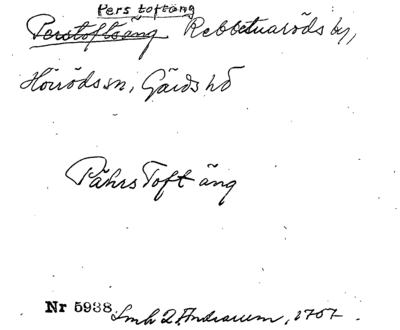 Pers toftäng
Perstoftsäng Rebbetuaröds by,
Hörröds sn, Gärds hd
Påhrs Toft äng
Nr 5938. Lmh 2. Andrarum, 1757.